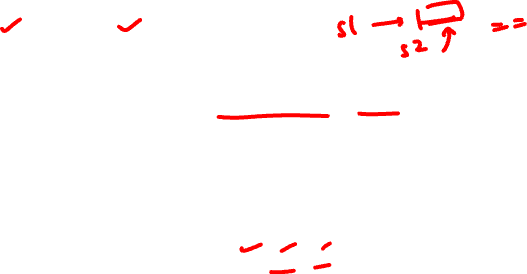 ✓ ✓ s1 → ==
s2